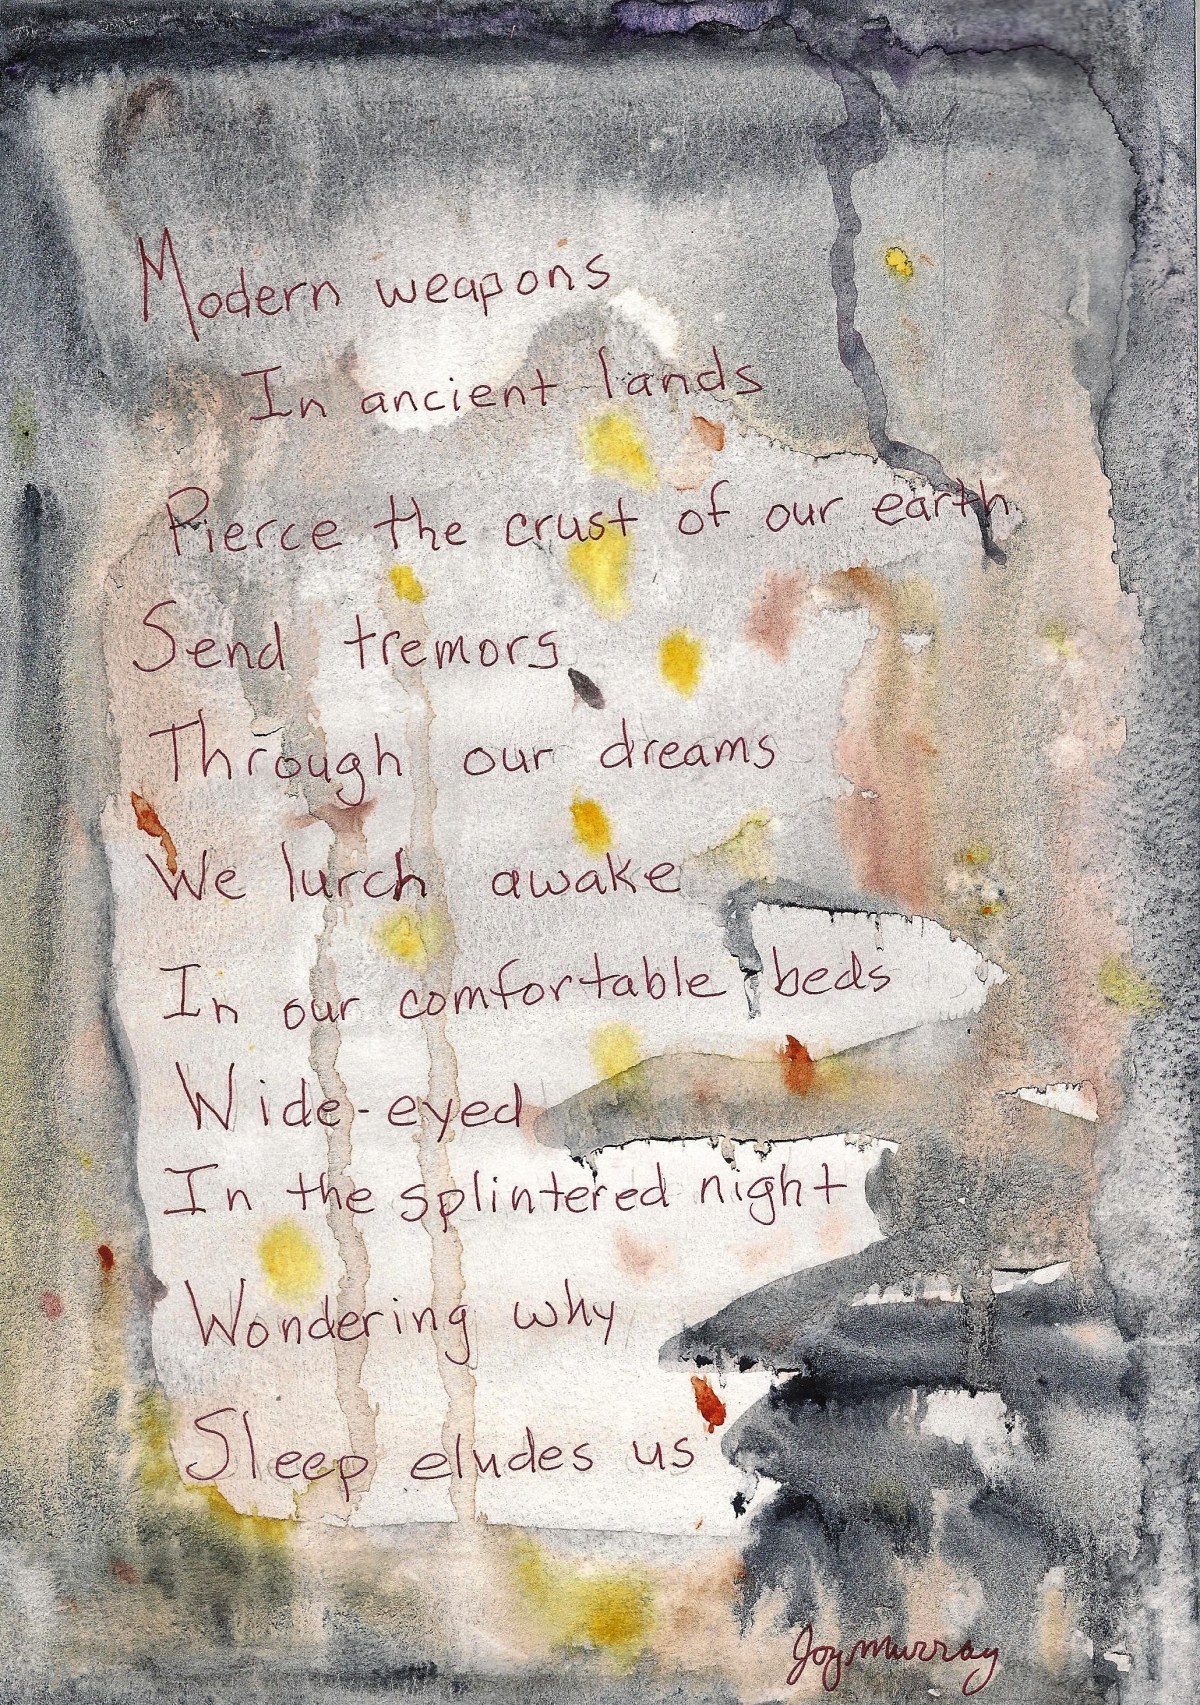 Modern weapons
In ancient lands
Pierce the crust of our earth
Send tremors
Through our dreams
We lurch awake
In our comfortable beds
Wide-eyed
In the splintered night
Wondering why
Sleep eludes us
Joy Murray